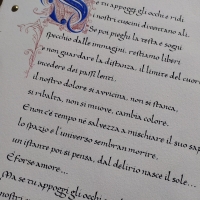 Se tu appoggi gli occhi e ridi
i nostri cuscini diventano ali.
Se poi pieghi la testa e sogni
specchio dalle immagini, restiamo liberi
non guardare la distanza, il limite del cuore
incedere dei passi lenti.
il nostro dolore si avvicina, non si stanca,
si ribalta, non si muove, cambia colore.
E non c'è tempo nè salvezza a mischiare il suo sap
lo spazio e l'universo sembran morire,
un istante poi si pensa, dal delirio nasce il sole...
E forse amore...
Ma se tu appoggi gli occhi
nostri